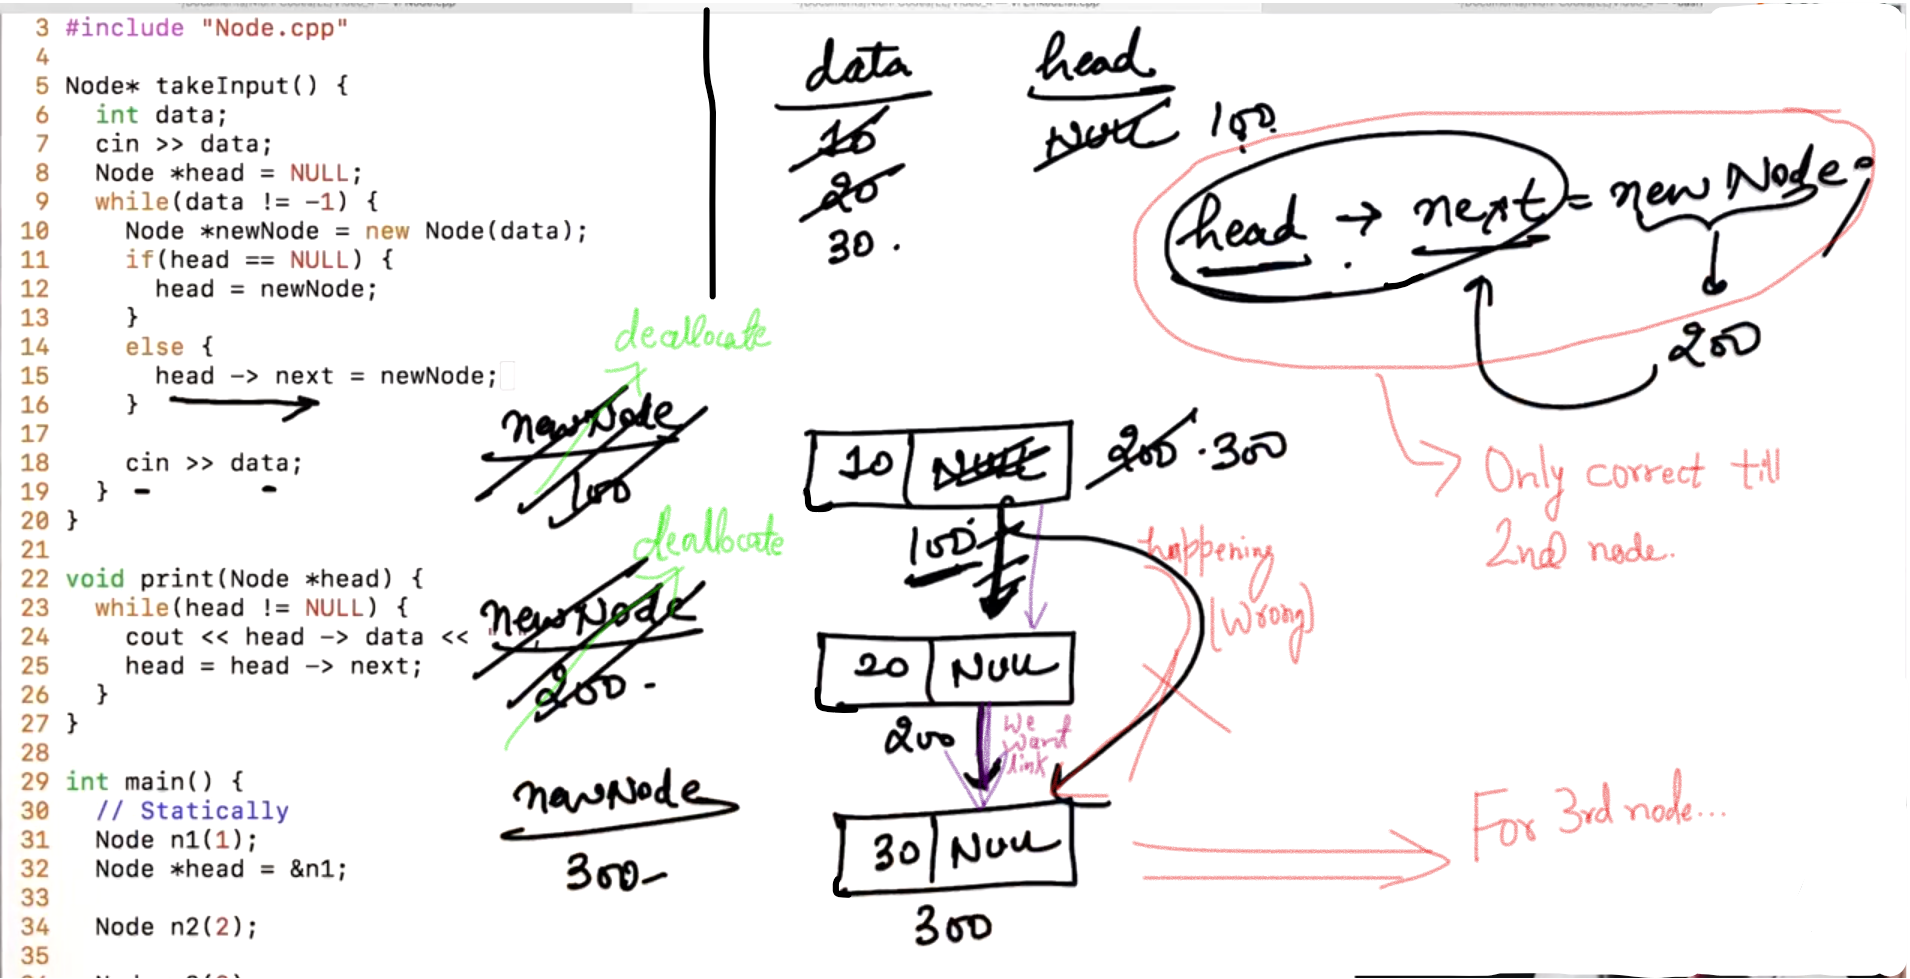 3 #include "Node.cpp"
4
5 Node* takeInput() {
6 int data;
7 cin >> data;
8 Node *head = NULL;
9 while(data != -1) {
10 Node *newNode = new Node(data);
11 if(head == NULL) {
12 head = newNode;
13 }
14 else {
15 head -> next = newNode;
16 }
17
18 cin >> data;
19 }
20 }
21
22 void print(Node *head) {
23 while(head != NULL) {
24 cout << head -> data << "
25 head = head -> next;
26 }
27 }
28
29 int main() {
30 // Statically
31 Node n1(1);
32 Node *head = &n1;
33
34 Node n2(2);
35
data
10
20
30.
head
NULL 100
head → next = new Node
200
Only correct till
2nd node.
deallocate
newNode
100
deallocate
newNode
200
newNode
300
10 NULL 200 300
100
happening
(Wrong)
20 NULL
200
we
want
link
30 NULL
300
For 3rd node...